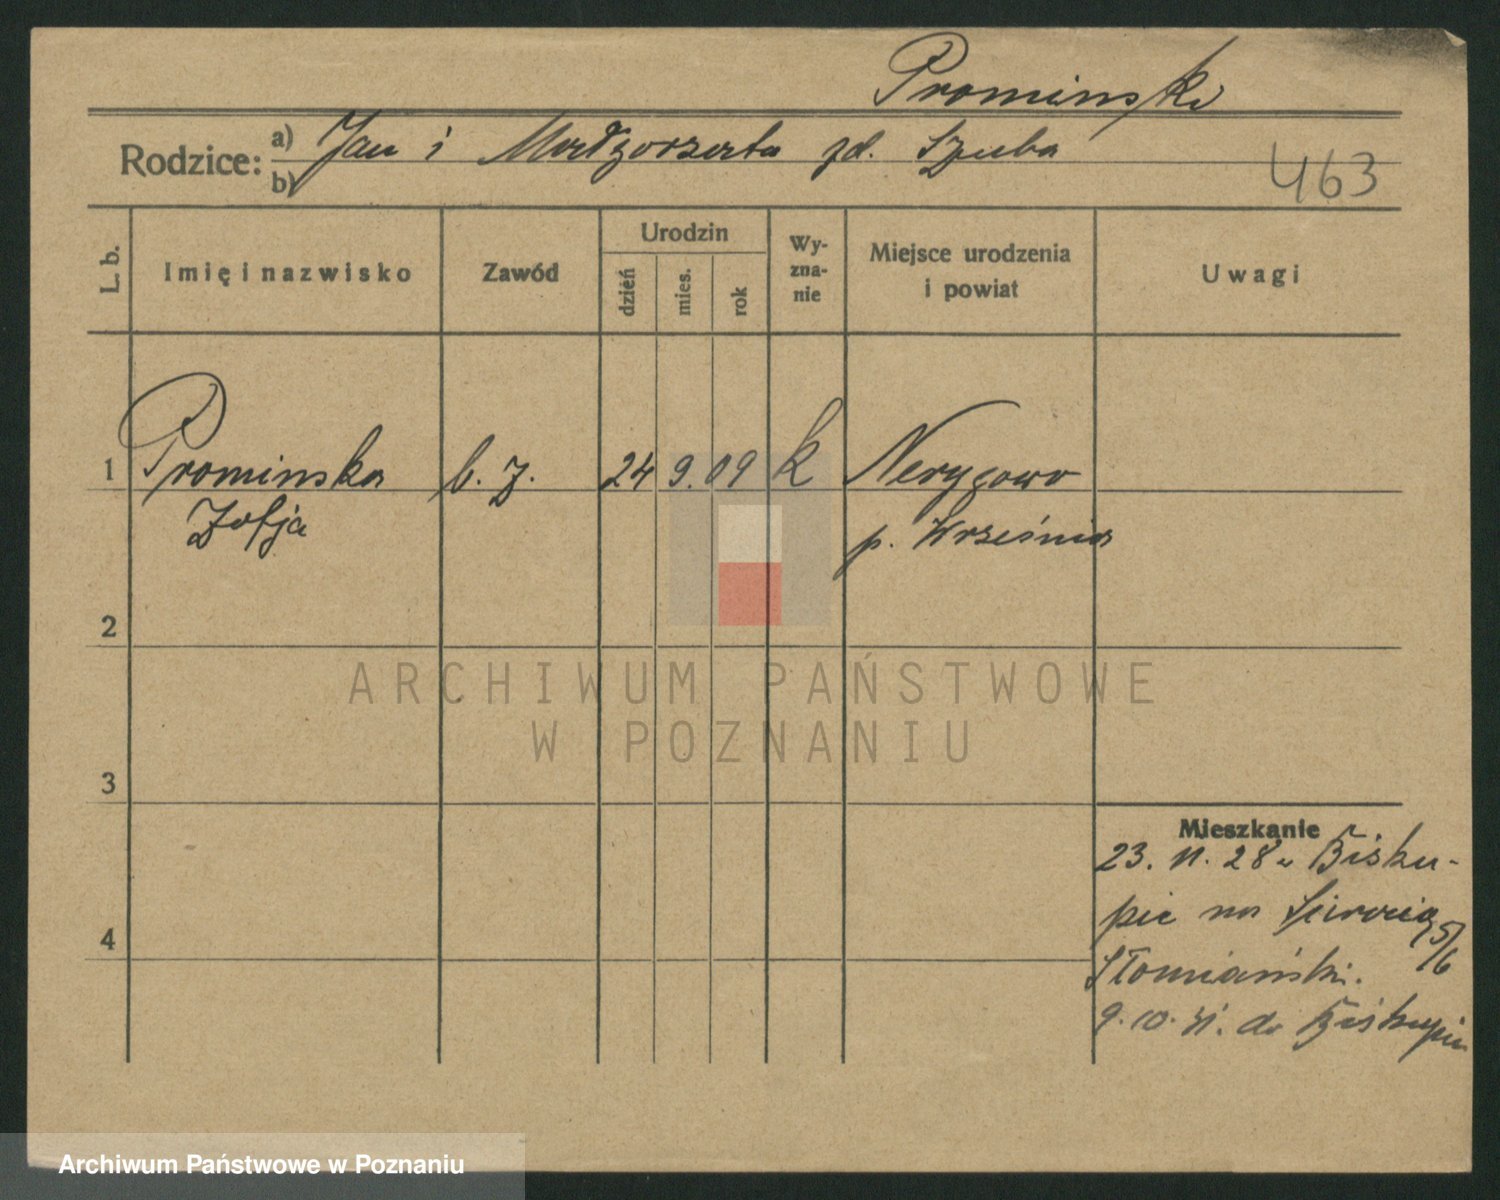 Prominski
Rodzice: a) Jan i Małgorzata zd. Szuba
b)
463
L. b.
Imię i nazwisko
Zawód
Urodzin
dzień
mies.
rok
Wy-
zna-
nie
Miejsce urodzenia
i powiat
Uwagi
1 Prominska b. z. 24 9. 09 k
Zofja p. Września
2
3
4
Mieszkanie
23. 11. 28 Bisku-
pic na 5/6
9. 10. 31. do Biskupic
ARCHIWUM PAŃSTWOWE
W POZNANIU
Archiwum Państwowe w Poznaniu